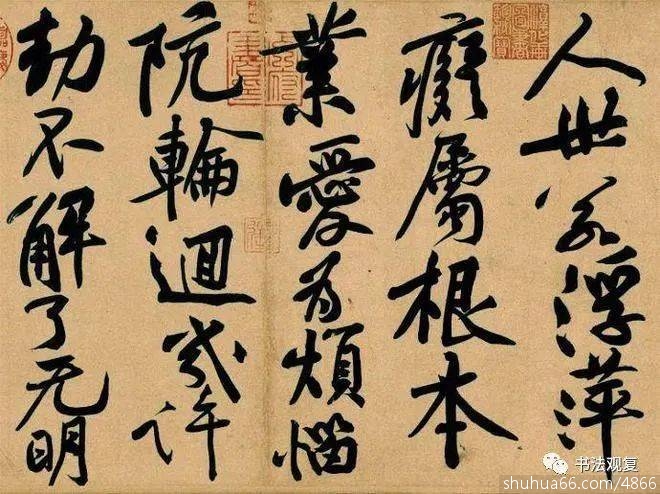 人世若浮萍
癡屬根本
業愛為煩惱
阬輪迴幾許
劫不解了无明
书法观复
shuhua66.com/4866